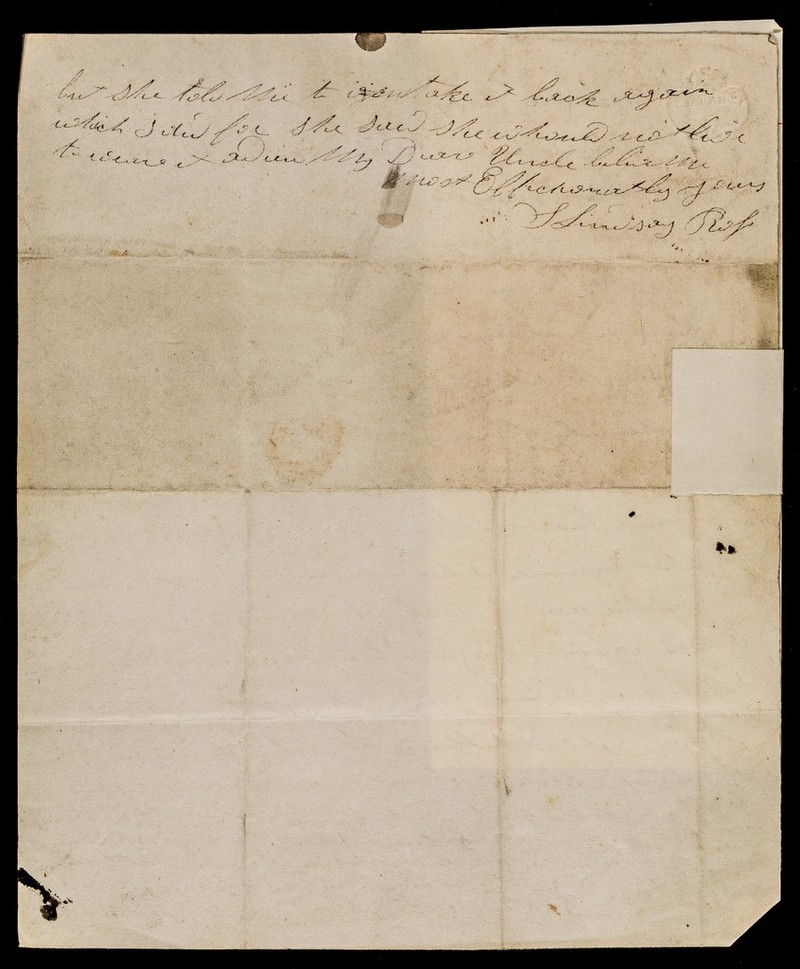 but she told Me to take it back again
which I did for she said she whould not live
to weare it adieu My Dear Uncle belive me
most Effectionatly yours
Lindsay Ross